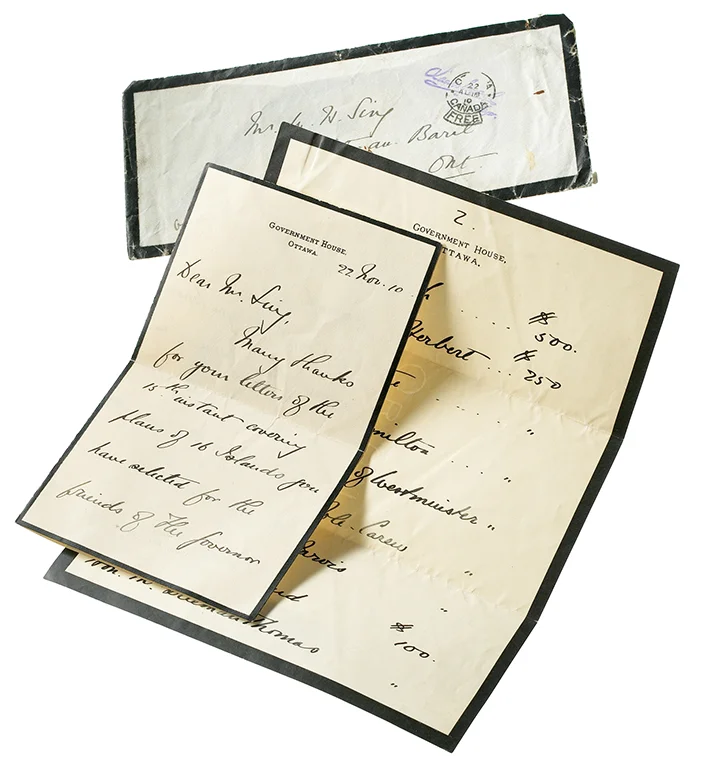 Mr. W. Sing
Baril
Ont
22
CANADA
FREE
GOVERNMENT HOUSE,
OTTAWA.
22 Nov. 10.
Dear Mr. Sing,
Many thanks
for your letters of the
15th instant covering
plans of 16 Islands you
have selected for the
friends of the Governor
2.
GOVERNMENT HOUSE,
OTTAWA.
$ 500.
Herbert .... $ 250
.... "
milton .... "
of Westminster "
Carew "
Jarvis "
$ 100.
Hon. Mr. Freeman Thomas "